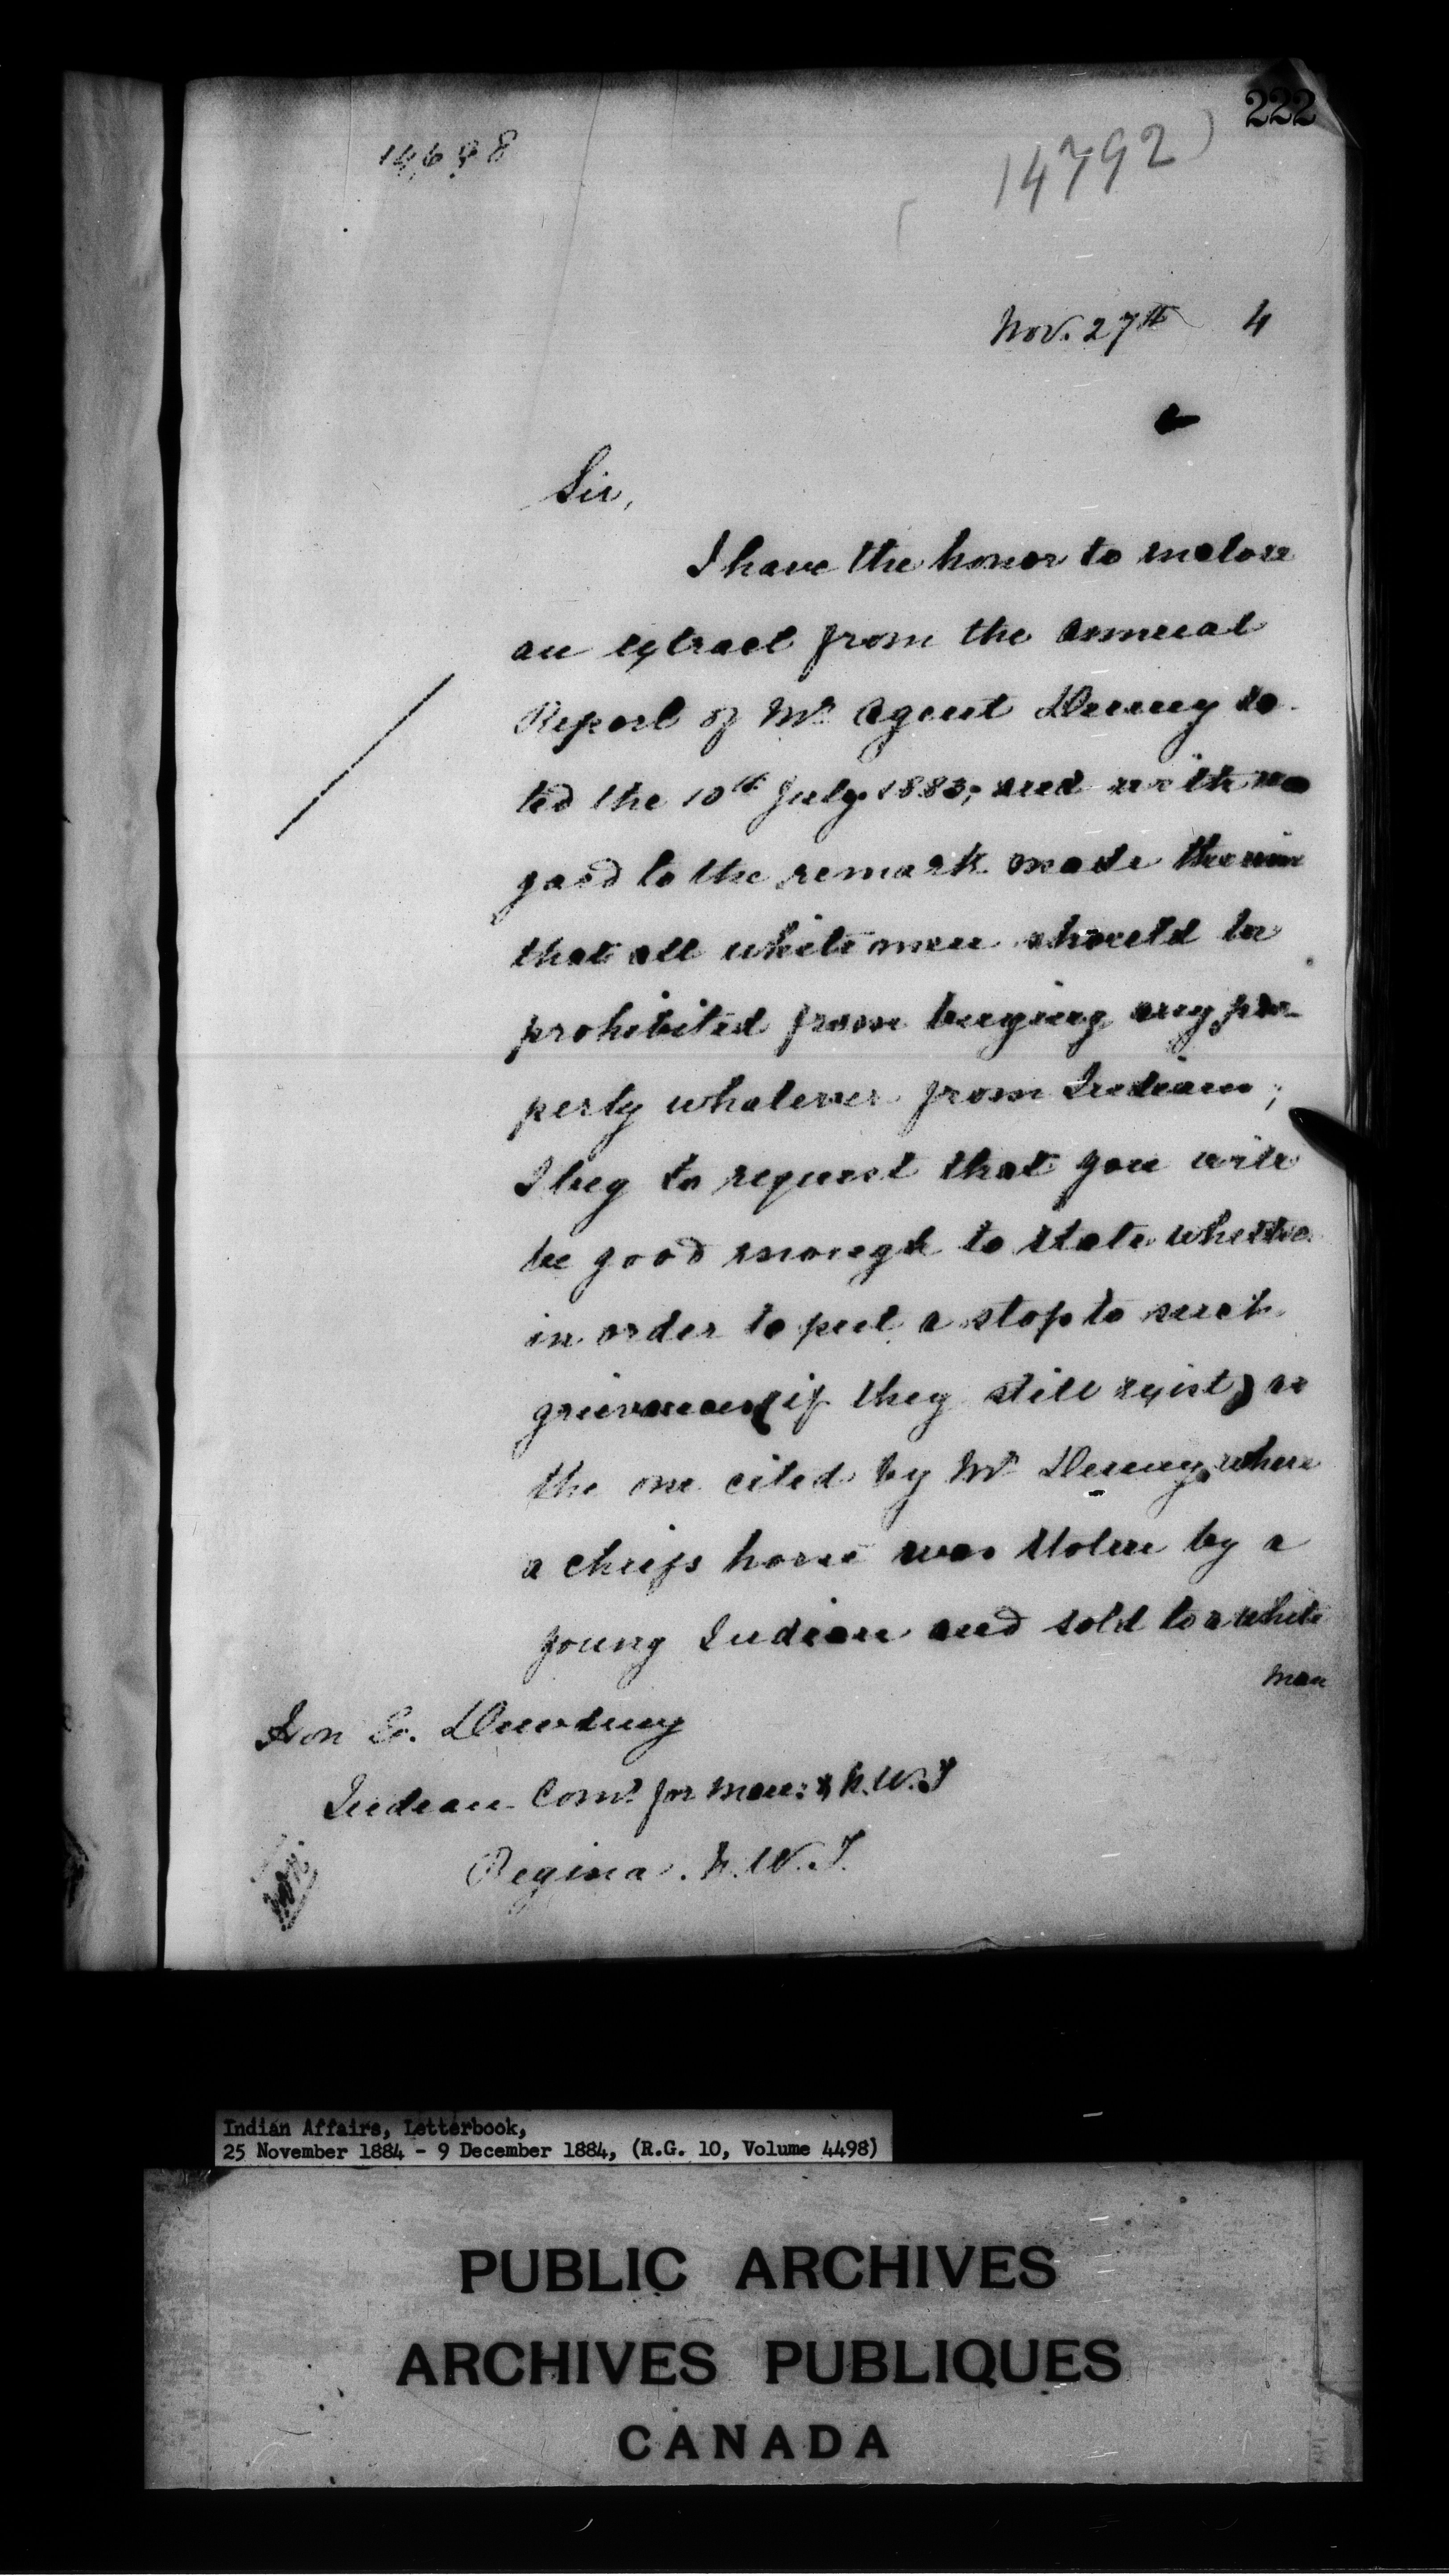 222
14,698
14792
Nov. 27th 4
Sir,
I have the honor to inclose
an extract from the annual
Report of Mr Agent Denny da-
ted the 10th July 1883; and with re
gard to the remark made therein
that all white men should be
prohibited from buying any pro-
perty whatever from Indians;
I beg to request that you will
be good enough to state whether
in order to put a stop to such
grievances (if they still exist) as
the one cited by Mr Denny, where
a chiefs horse was stolen by a
young Indian and sold to a white
man
Hon E. Dewdney
Indian Comr for Man: & N.W.T
Regina. N.W.T.
Indian Affairs, Letterbook,
25 November 1884 - 9 December 1884, (R.G. 10, Volume 4498)
PUBLIC ARCHIVES
ARCHIVES PUBLIQUES
CANADA